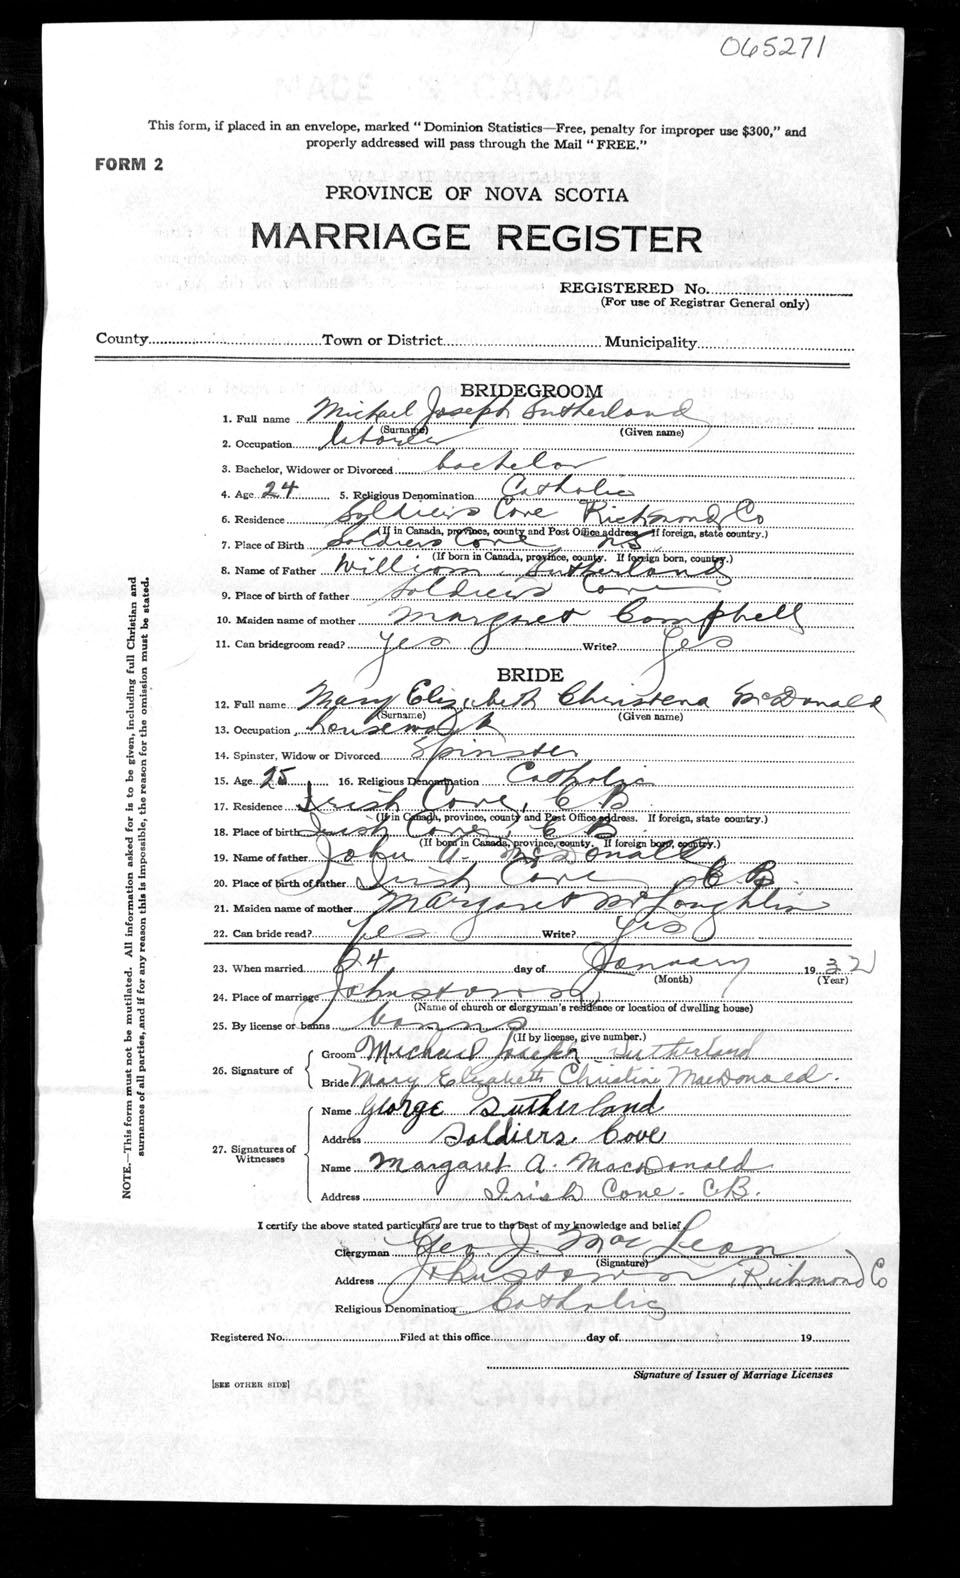 065271
This form, if placed in an envelope, marked "Dominion Statistics—Free, penalty for improper use $300," and
properly addressed will pass through the Mail "FREE."
FORM 2
PROVINCE OF NOVA SCOTIA
MARRIAGE REGISTER
REGISTERED No.
(For use of Registrar General only)
County Town or District Municipality
BRIDEGROOM
1. Full name Michael Joseph Sutherland
(Surname) (Given name)
2. Occupation laborer
3. Bachelor, Widower or Divorced bachelor
4. Age 24 5. Religious Denomination Catholic
6. Residence Soldiers Cove Richmond Co
(If in Canada, province, county and Post Office address. If foreign, state country.)
7. Place of Birth Soldiers Cove NS
(If born in Canada, province, county. If foreign born, country.)
8. Name of Father William Sutherland
9. Place of birth of father Soldiers Cove
10. Maiden name of mother Margaret Campbell
11. Can bridegroom read? yes Write? yes
BRIDE
12. Full name Mary Elizabeth Christena McDonald
(Surname) (Given name)
13. Occupation housework
14. Spinster, Widow or Divorced Spinster
15. Age 25 16. Religious Denomination Catholic
17. Residence Irish Cove, C B
(If in Canada, province, county and Post Office address. If foreign, state country.)
18. Place of birth Irish Cove, C B.
(If born in Canada, province, county. If foreign born, country.)
19. Name of father John A. McDonald
20. Place of birth of father Irish Cove C B.
21. Maiden name of mother Margaret McLoughlin
22. Can bride read? yes Write? yes
23. When married 24 day of January 1932
(Month) (Year)
24. Place of marriage Johnstown
(Name of church or clergyman's residence or location of dwelling house)
25. By license or banns banns
(If by license, give number.)
26. Signature of
Groom Michael Joseph Sutherland
Bride Mary Elizabeth Christine MacDonald.
27. Signatures of Witnesses
Name George Sutherland
Address Soldiers Cove
Name Margaret A. MacDonald
Address Irish Cove. C.B.
I certify the above stated particulars are true to the best of my knowledge and belief.
Clergyman Geo. J. MacLean
(Signature)
Address Johnstown, Richmond Co
Religious Denomination Catholic
Registered No. Filed at this office day of 19
Signature of Issuer of Marriage Licenses
[SEE OTHER SIDE]
NOTE.—This form must not be mutilated. All information asked for is to be given, including full Christian and
surnames of all parties, and if for any reason this is impossible, the reason for the omission must be stated.